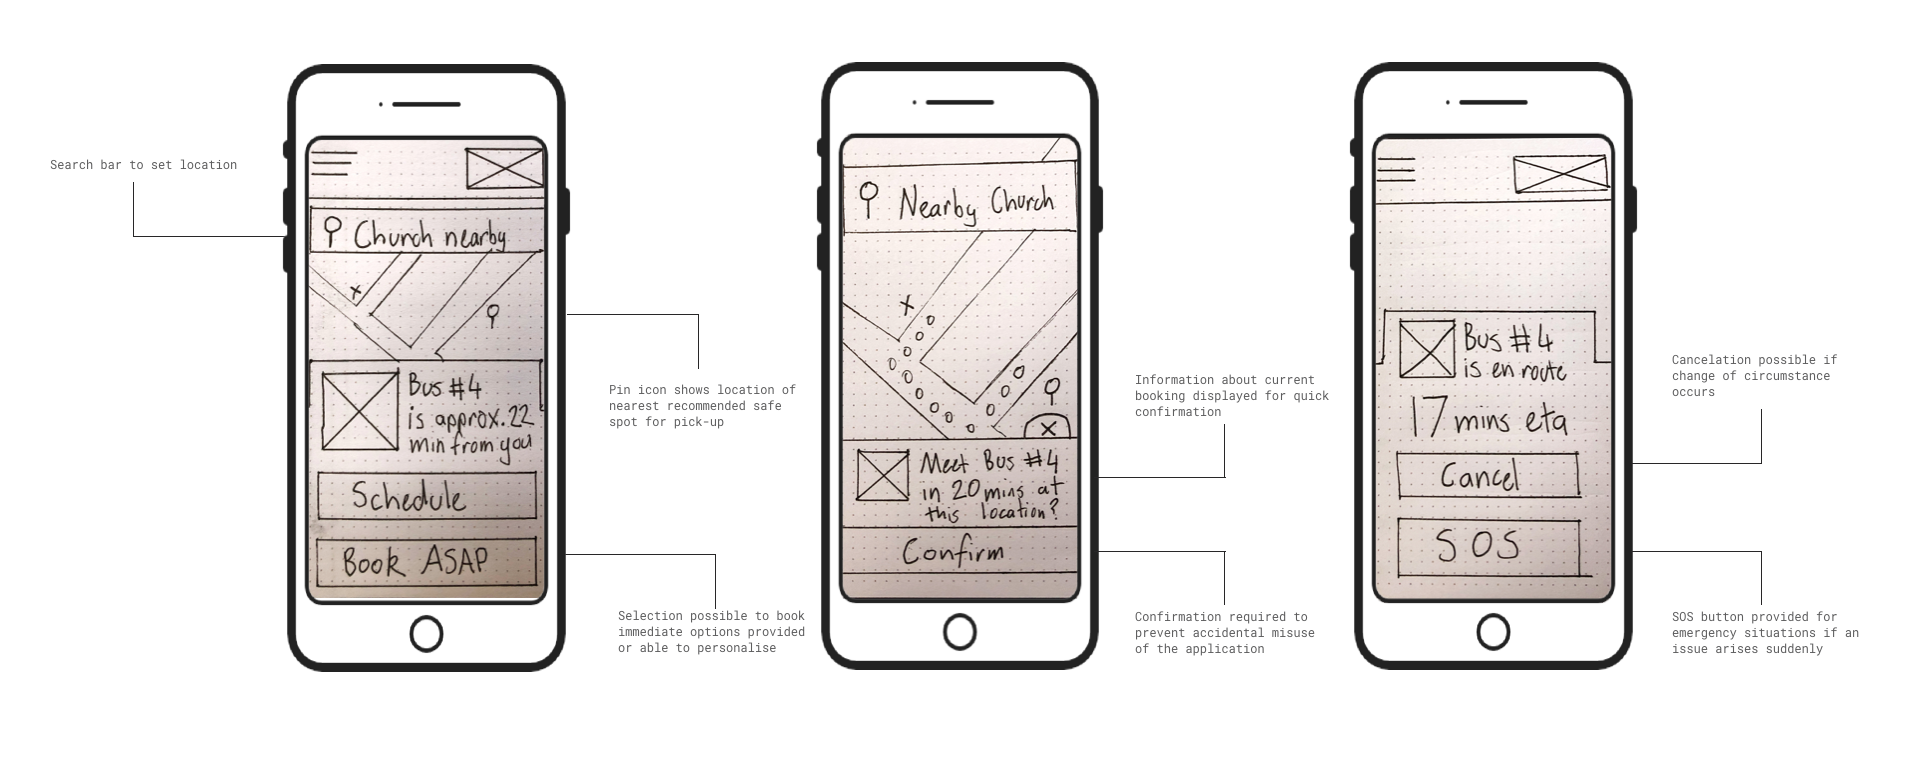 Search bar to set location
Church nearby
Bus #4
is approx. 22
min from you
Schedule
Book ASAP
Pin icon shows location of
nearest recommended safe
spot for pick-up
Selection possible to book
immediate options provided
or able to personalise
Nearby Church
Meet Bus #4
in 20 mins at
this location?
Confirm
Information about current
booking displayed for quick
confirmation
Confirmation required to
prevent accidental misuse
of the application
Bus #4
is en route
17 mins eta
Cancel
SOS
Cancelation possible if
change of circumstance
occurs
SOS button provided for
emergency situations if an
issue arises suddenly